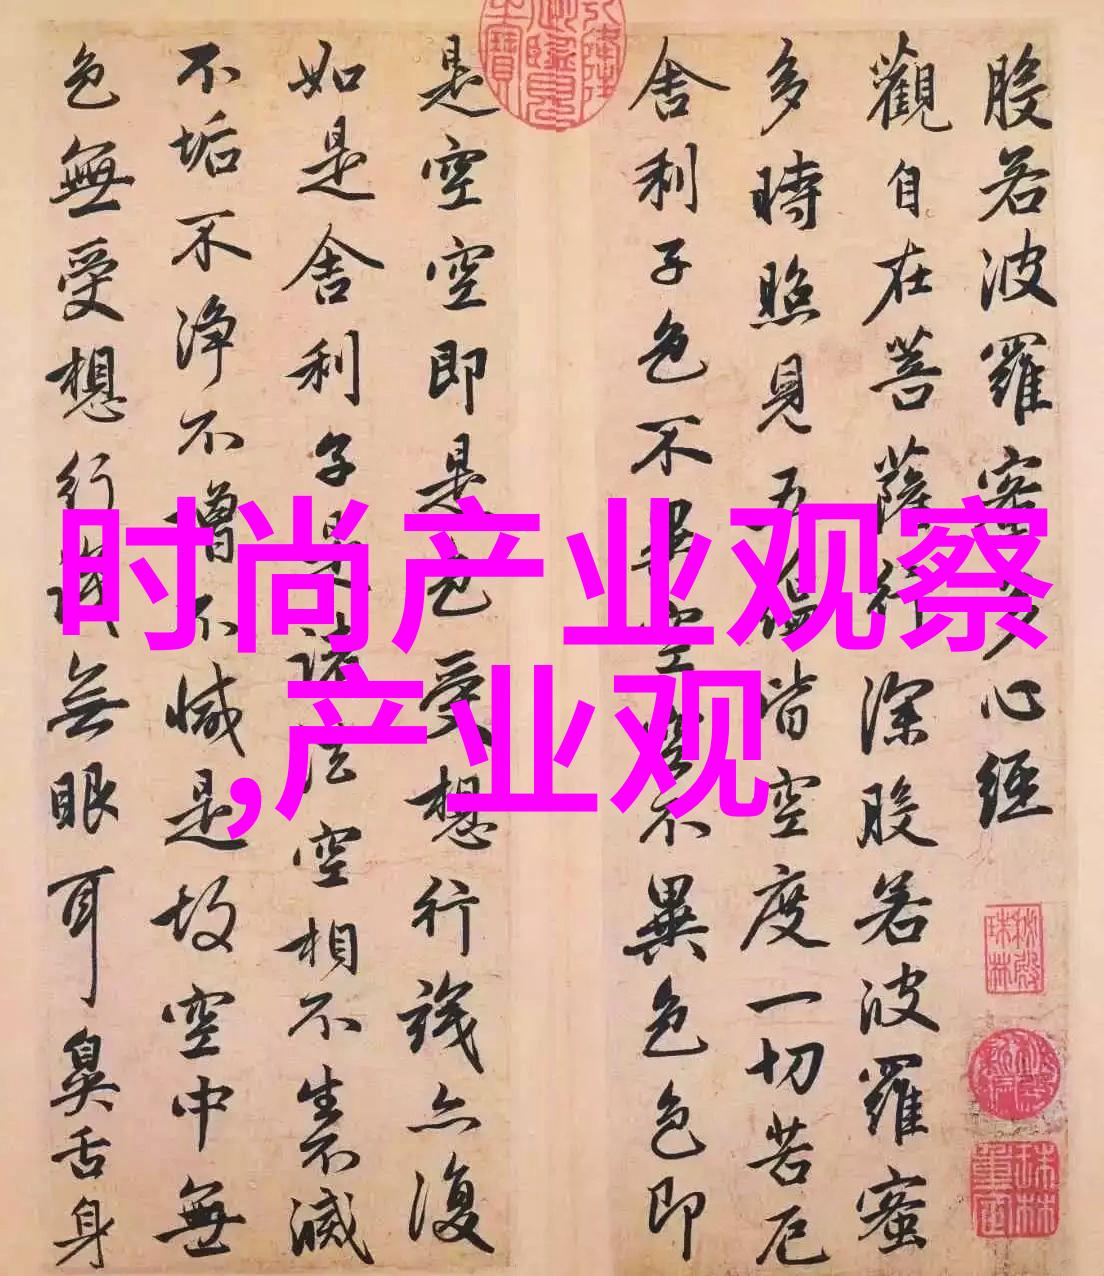 般若波羅蜜多心經
觀自在菩薩行深般若波羅蜜
多時照見五蘊皆空度一切苦厄
舍利子色不異空空不異色色即
是空空即是色受想行識亦復
如是舍利子是諸法空相不生不滅
不垢不淨不增不減是故空中無
色無受想行識無眼耳鼻舌身
时尚产业观察
,产业观